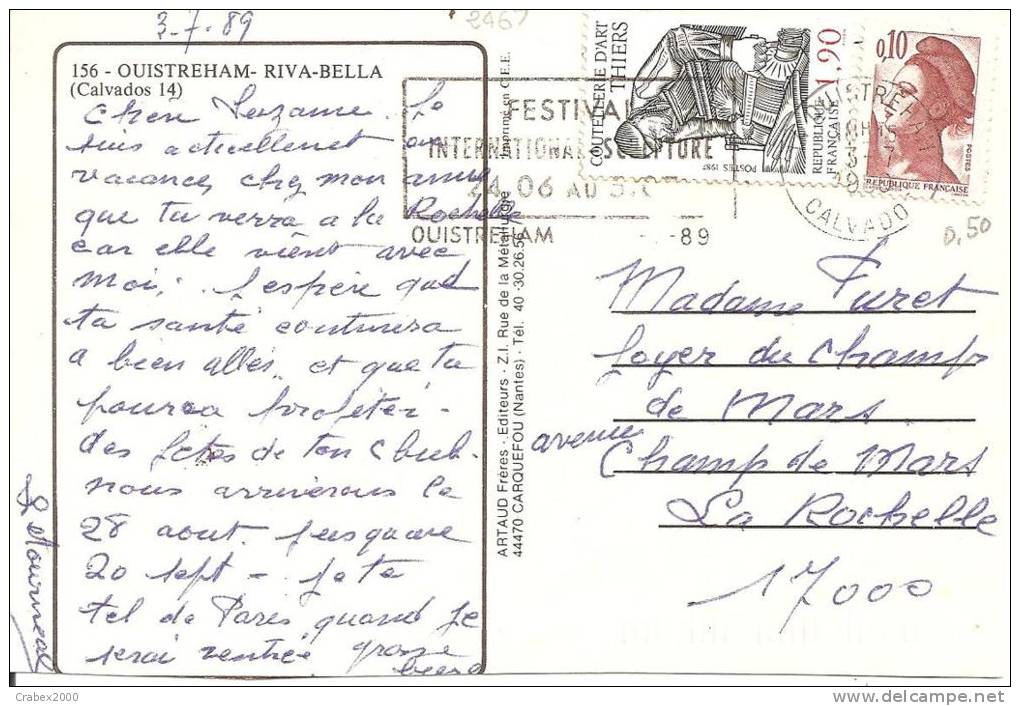 3-7-89
2467
156 - OUISTREHAM- RIVA-BELLA
(Calvados 14)
Chere Suzanne. Je
suis actuellement en
vacance, chez mon amie
que tu verra a la Rochelle
car elle vient avec
moi, J'espère que
ta santé continuera
a bien aller, et que tu
pourra profiter
des fetes de ton Club.
nous arriverons le
28 aout. jusquau
20 sept - Je te
tel de Paris quand je
serai rentrée grosse
bises
Imprimé en C.E.E.
ARTAUD Frères - Editeurs - Z.I. Rue de la Métallurgie
44470 CARQUEFOU (Nantes) - Tél. 40 30.26.56
FESTIVAL
INTERNATIONAL SCULPTURE
24.06 AU
OUISTREHAM -89
COUTELLERIE D'ART
THIERS
1,90
RÉPUBLIQUE
FRANÇAISE
POSTES 1987
0,10
POSTES
REPUBLIQUE FRANÇAISE
CALVADO
0,50
Madame Puret
foyer du Champ
de Mars
avenue Champ de Mars
La Rochelle
17000
Crabex2000
www.delcampe.net